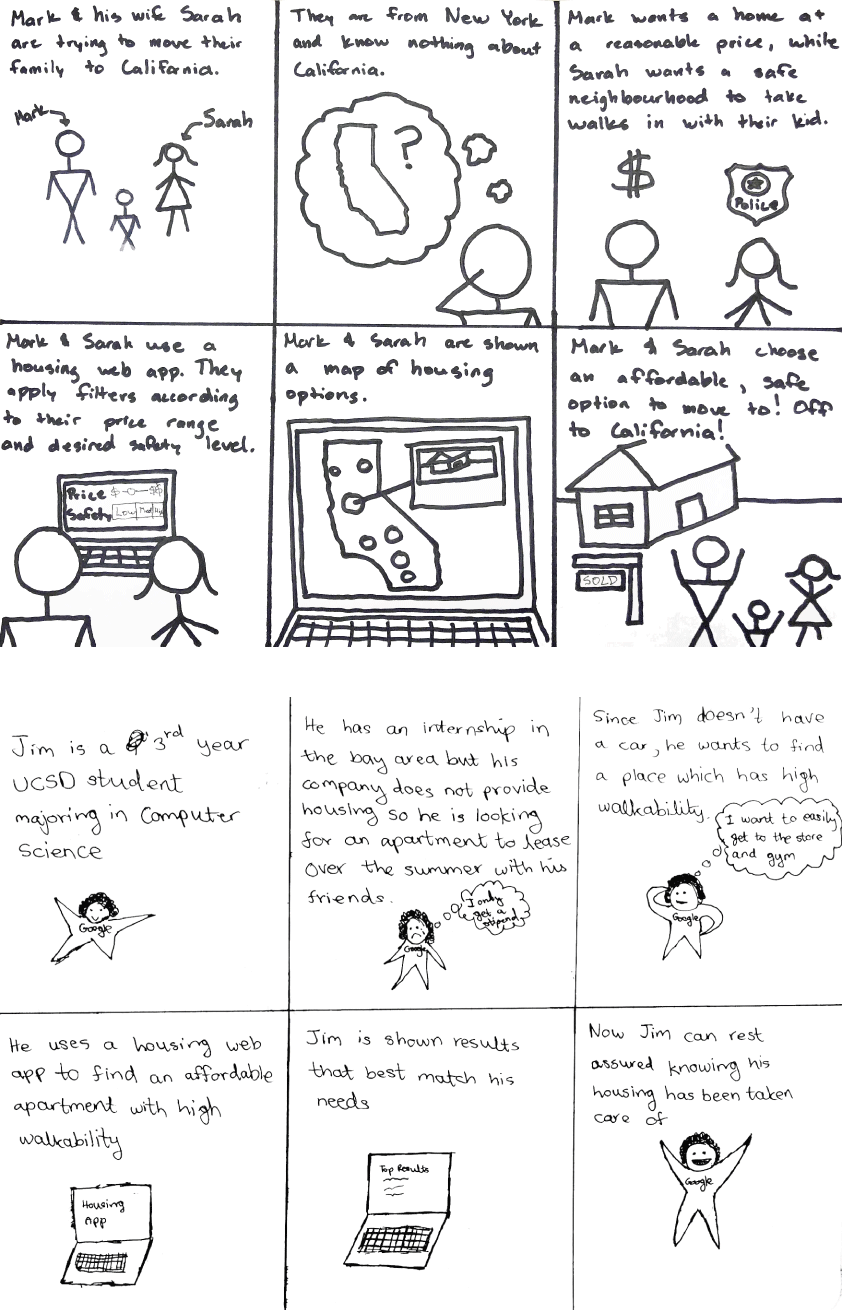 Mark & his wife Sarah
are trying to move their
family to California.
Mark
Sarah
They are from New York
and know nothing about
California.
?
Mark wants a home at
a reasonable price, while
Sarah wants a safe
neighbourhood to take
walks in with their kid.
$
Police
Mark & Sarah use a
housing web app. They
apply filters according
to their price range
and desired safety level.
Price $ $$
Safety Low Med
Mark & Sarah are shown
a map of housing
options.
Mark & Sarah choose
an affordable, safe
option to move to! Off
to California!
SOLD
Jim is a 3rd year
UCSD student
majoring in Computer
Science
Google
He has an internship in
the bay area but his
company does not provide
housing so he is looking
for an apartment to lease
over the summer with his
friends.
I only
get a
stipend
Google
Since Jim doesn't have
a car, he wants to find
a place which has high
walkability.
I want to easily
get to the store
and gym
Google
He uses a housing web
app to find an affordable
apartment with high
walkability
Housing
App
Jim is shown results
that best match his
needs
Top Results
Now Jim can rest
assured knowing his
housing has been taken
care of
Google